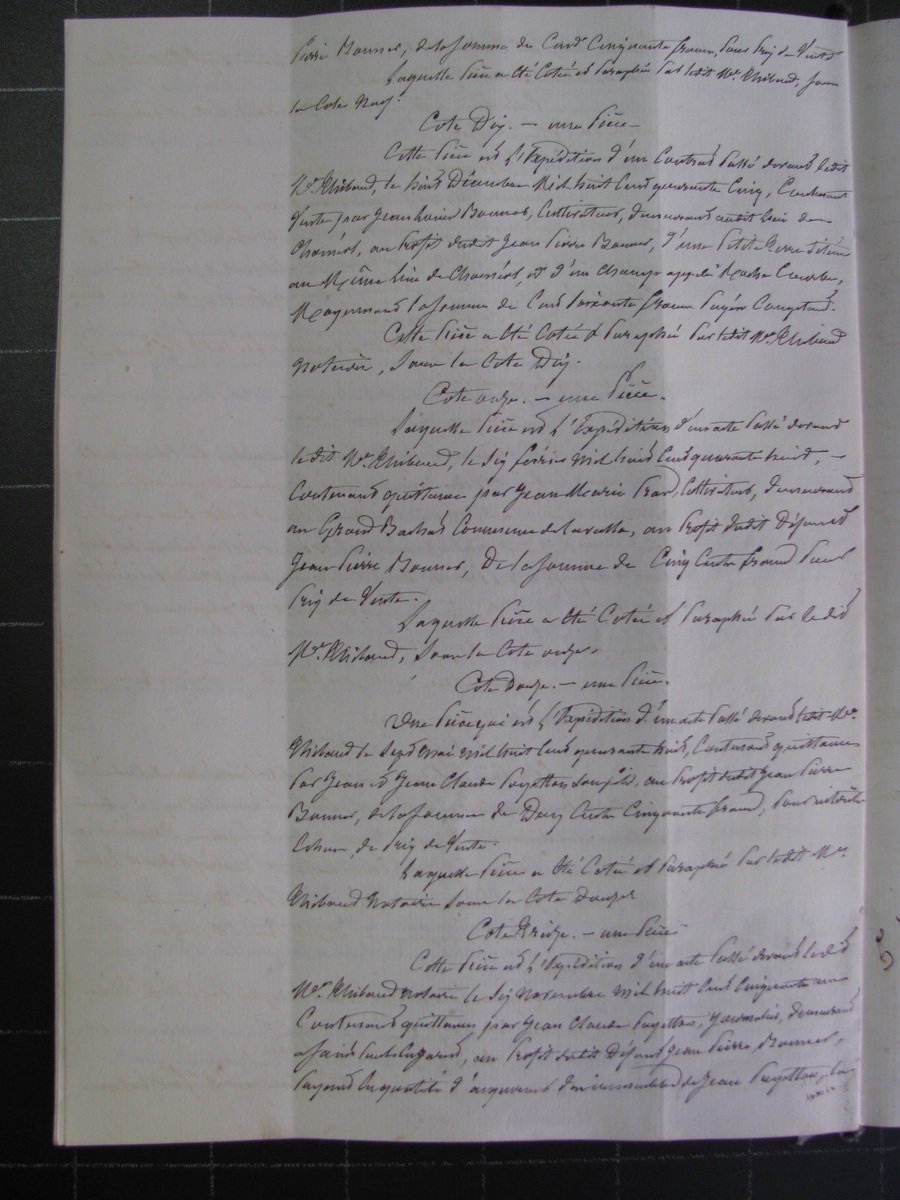 Pierre Bonnet, de la somme de Cent Cinquante francs, pour prix de Vente
Laquelle Pièce a été Cotée et Paraphée Par ledit Me. Thibaud, sous
la Cote Neuf.
Cote Dix. — une Pièce
Cette Pièce est l'Expédition d'un Contrat Passé devant ledit
Me. Thibaud, le huit Décembre Mil huit Cent quarante Cinq, Contenant
Vente par Jean Bonnet, Cultivateur, demeurant audit lieu de
au Profit dudit Jean Pierre Bonnet, d'une Petite Terre située
au Même lieu de et d'un champ appelé
Moyennant la somme de Cent soixante francs Payés Comptant.
Cette Pièce a été Cotée & Paraphée Par ledit Me. Thibaud
Notaire, sous la Cote Dix.
Cote onze. — une Pièce.
Laquelle Pièce est l'Expédition d'un acte Passé devant
ledit Me. Thibaud, le dix février Mil huit Cent quarante huit, —
Contenant quittance par Jean Marie Cultivateur, demeurant
au Grand Commune de au Profit dudit Défunt
Jean Pierre Bonnet, De la somme de Cinq Cents francs Pour
Prix de Vente.
Laquelle Pièce a été Cotée et Paraphée Par le dit
Me. Thibaud, sous la Cote onze.
Cote Douze. — une Pièce.
Une Pièce qui est l'Expédition d'un acte Passé devant ledit Me.
Thibaud le Sept mai mil huit Cent quarante huit, Contenant quittance
Par Jean et Jean Claude son fils, au Profit dudit Jean Pierre
Bonnet, de la somme de Deux Cents Cinquante francs, Pour
de Prix de Vente.
Laquelle Pièce a été Cotée et Paraphée Par ledit Me.
Thibaud Notaire sous la Cote douze
Cote Treize. — une Pièce
Cette Pièce est l'Expédition d'un acte Passé devant ledit
Me. Thibaud Notaire le dix Novembre Mil huit Cent Cinquante un
Contenant quittance par Jean Claude Journalier, demeurant
au Profit dudit Défunt Jean Pierre Bonnet,
ayant la qualité d'acquéreur d'immeubles de Jean